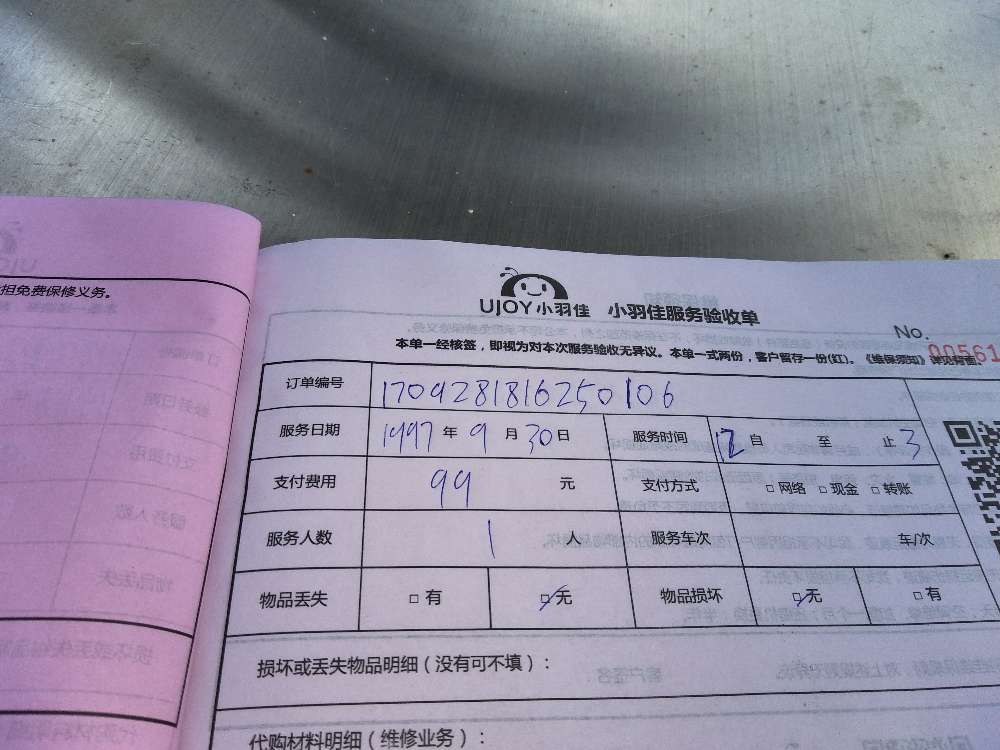 担免费保修义务。
UJOY小羽佳 小羽佳服务验收单
No. 00561
本单一经核签，即视为对本次服务验收无异议。本单一式两份，客户留存一份(红)。《维保须知》详见背面。
订单编号 1709281816250106
服务日期 1997 年 9 月 30 日 服务时间 12 自 至 止 3
支付费用 99 元 支付方式 □ 网络 □ 现金 □ 转账
服务人数 1 人 服务车次 车/次
物品丢失 □ 有 ☑ 无 物品损坏 ☑ 无 □ 有
损坏或丢失物品明细（没有可不填）：
代购材料明细（维修业务）：